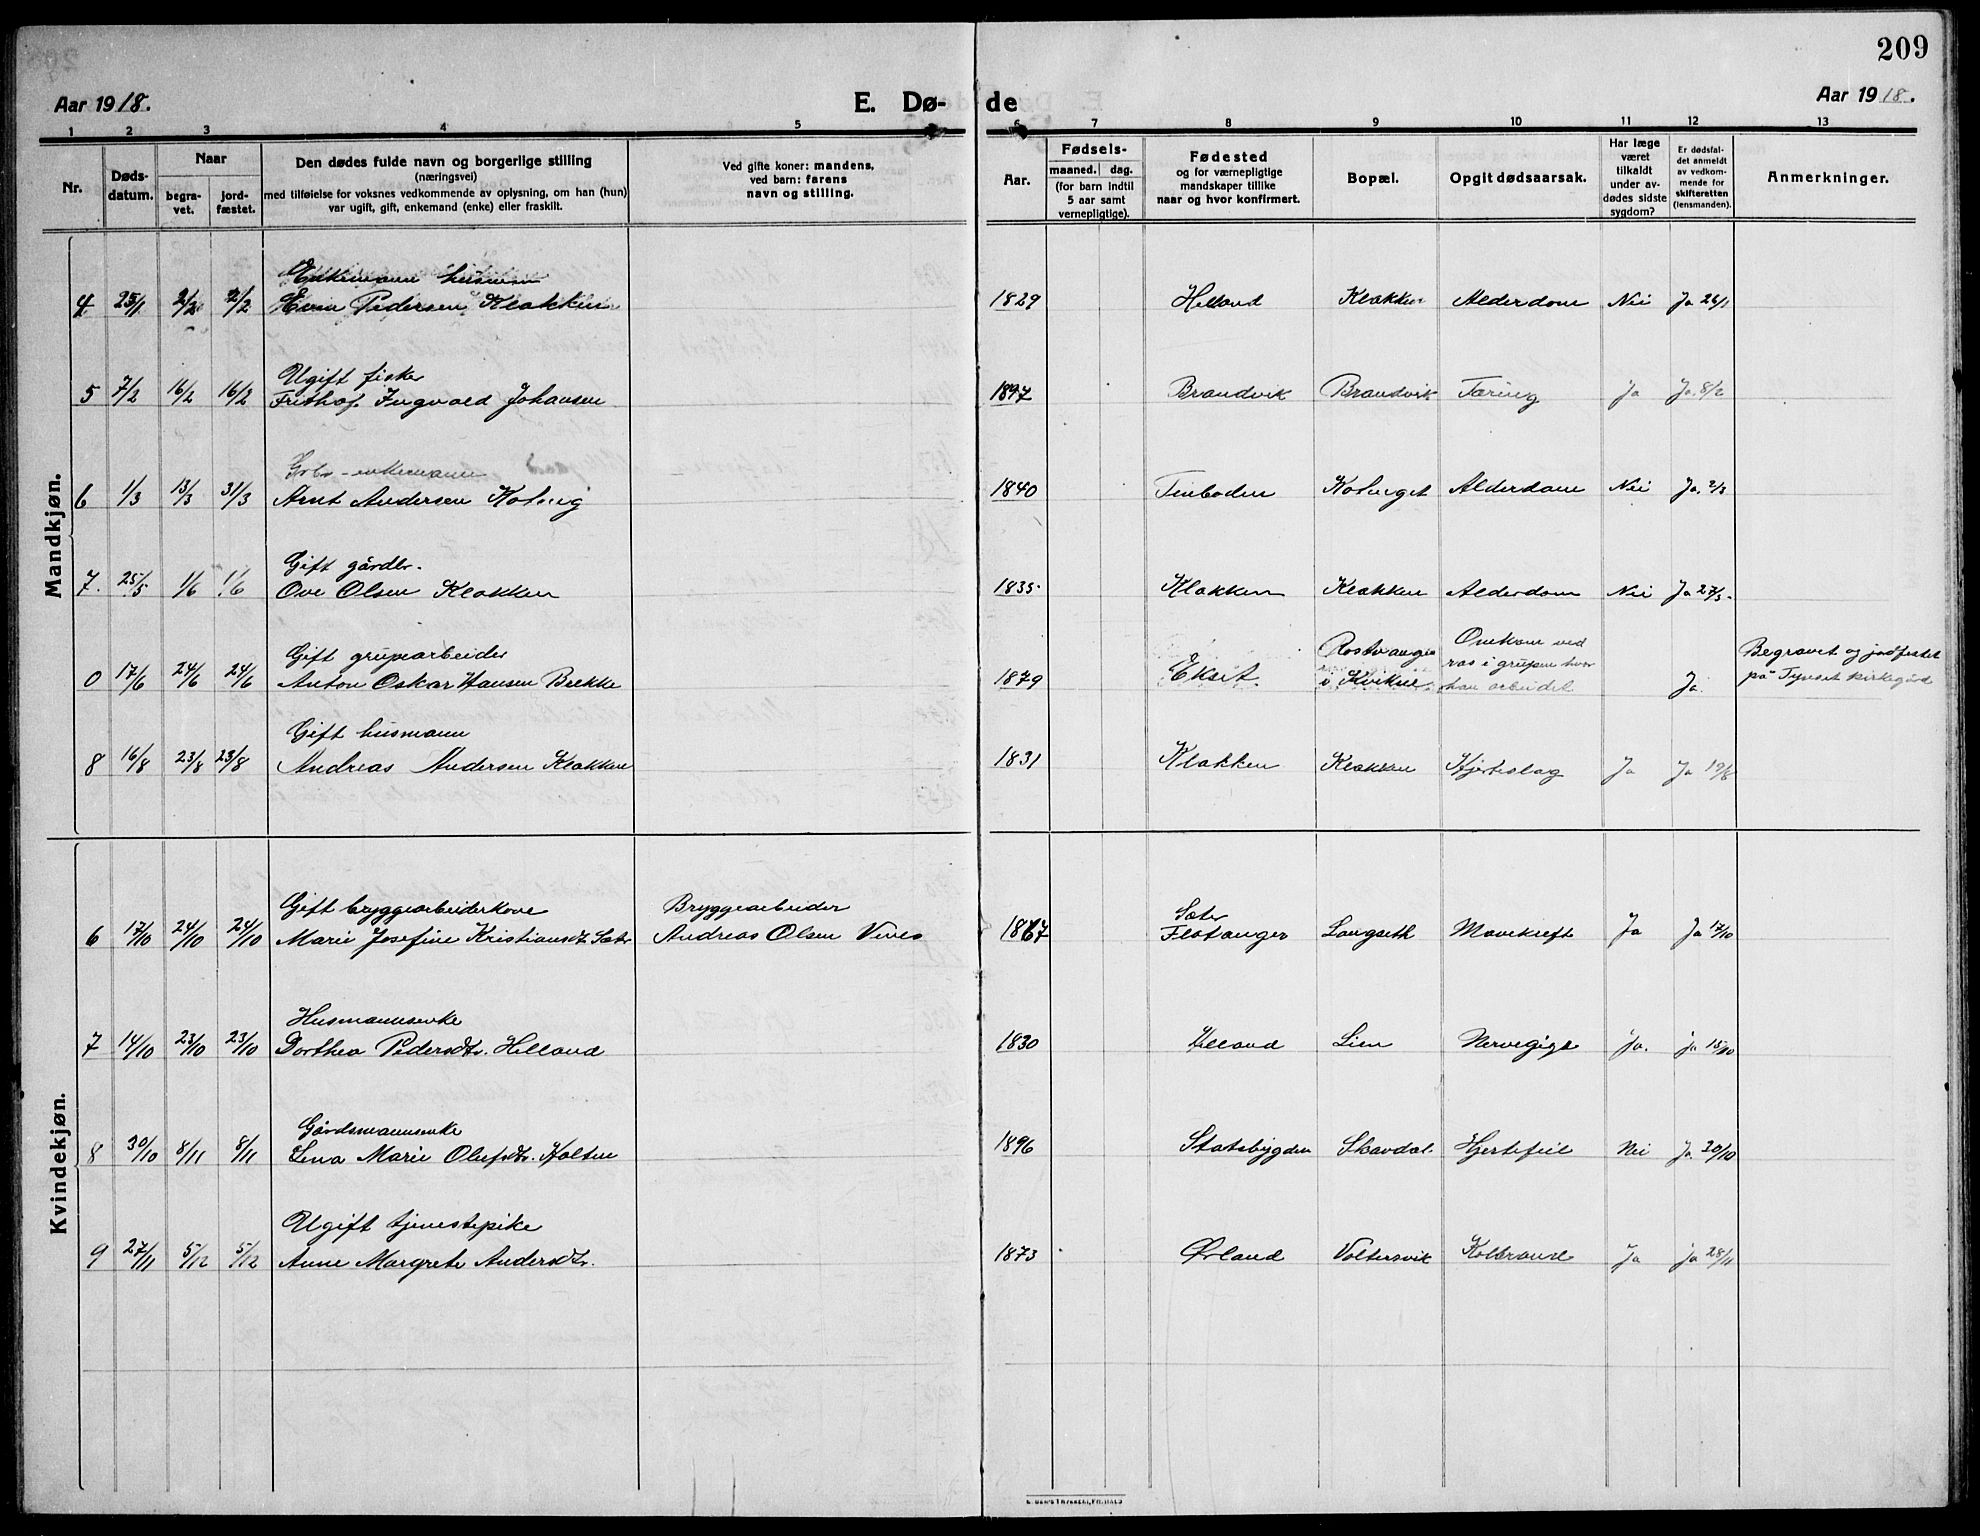 209
Aar 1918.
E. Dø-
de
Aar 1918.
1 2 3 4 5 6 7 8 9 10 11 12 13
Nr.
Døds-
datum.
Naar
begra-
vet.
jord-
fæstet.
Den dødes fulde navn og borgerlige stilling
(næringsvei)
med tilføielse for voksnes vedkommende av oplysning, om han (hun)
var ugift, gift, enkemand (enke) eller fraskilt.
Ved gifte koner: mandens,
ved barn: farens
navn og stilling.
Aar.
Fødsels-
maaned. dag.
(for barn indtil
5 aar samt
vernepligtige).
Fødested
og for værnepligtige
mandskaper tillike
naar og hvor konfirmert.
Bopæl.
Opgit dødsaarsak.
Har læge
været
tilkaldt
under av-
dødes sidste
sygdom?
Er dødsfal-
det anmeldt
av vedkom-
mende for
skifteretten
(lensmanden).
Anmerkninger.
Mandkjøn.
Enkemann husmann
4 25/1 2/2 2/2 Even Pedersen Klakken 1829 Helland Klakken Alderdom Nei Ja 26/1
Ugift fisker
5 7/2 16/2 16/2 Frithof Ingvald Johansen 1897 Brandvik Brandvik Tæring Ja Ja. 8/2
Grbr - enkemann
6 1/3 13/3 31/3 Arnt Andersen 1840 Alderdom Nei Ja. 2/3
Gift gårdbr.
7. 25/5 1/6 1/6 Ove Olsen Klakken 1835 Klakken Klakken Alderdom Nei Ja 27/5
Gift grupearbeider Rostvangen Omkom ved Begravet og jordfestet
0 17/6 24/6 24/6 Anton Oskar Hansen Brekke 1879 Ekset i Kvikne ras i grupen hvor Ja. på Tynset kirkegård
han arbeidet
Gift husmann
8 16/8 23/8 23/8 Andreas Andersen Klakken 1831 Klakken Klakken Hjerteslag Ja Ja 19/8
Kvindekjøn.
Gift bryggearbeiderkone Bryggearbeider Sæter
6 17/10 24/10 24/10 Marie Josefine Kristiansdt. Sæter Andreas Olsen 1867 Flatanger Langseth Mavekreft Ja Ja 17/10
Husmannsenke
7 14/10 23/10 23/10 Dorthea Pedersdtr. Helland 1830 Helland Lien Nervegigt Ja. ja 15/10
Gårdsmannsenke
8 30/10 8/11 8/11 Lena Marie Olufsdtr. Holten 1896 Statsbygden Skavdal Hjertefeil Nei Ja 30/10
Ugift tjenestepike
9 27/11 5/12 5/12 Anne Margrete Andersdtr. 1873 Ørland Voltersvik Kolbrand Ja ja 28/11